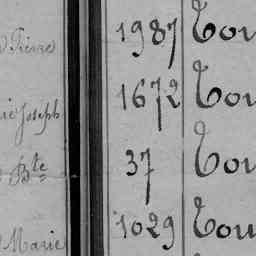 Pierre 1987 Tou
Joseph 1672 Tou
Bte 37 Tou
Marie 1029 Tou